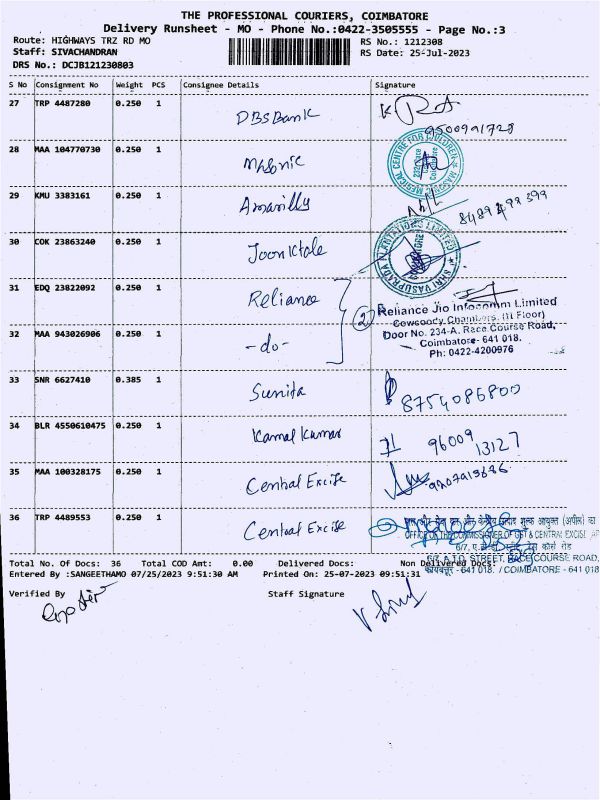 THE PROFESSIONAL COURIERS, COIMBATORE
Delivery Runsheet - MO - Phone No.:0422-3505555 - Page No.:3
Route: HIGHWAYS TRZ RD MO
RS No.: 1212308
Staff: SIVACHANDRAN
RS Date: 25-Jul-2023
DRS No.: DCJB121230803
S No Consignment No Weight PCS Consignee Details Signature
27 TRP 4487280 0.250 1 DBS Bank
9500991728
28 MAA 104770730 0.250 1 Masonic
MASONIC MEDICAL CENTRE FOR CHILDREN
29 KMU 3383161 0.250 1 Amarilly
30 COK 23863240 0.250 1 Joonktole
SHRI VASUPRADA PLANTATIONS LIMITED
31 EDQ 22822092 0.250 1 Reliance
2
Reliance Jio Infocomm Limited
Cowsoody Chambers, (II Floor)
Door No. 234-A, Race Course Road,
Coimbatore- 641 018.
Ph: 0422-4200976
32 MAA 943026906 0.250 1 -do-
33 SNR 6627410 0.385 1 Sunita 8754086800
34 BLR 4550610475 0.250 1 Kamal Kumar 96009 13127
35 MAA 100328175 0.250 1 Central Excise
36 TRP 4489553 0.250 1 Central Excise
केन्द्रीय उत्पाद शुल्क आयुक्त (अपील) का
OFFICE OF THE COMMISSIONER OF GST & CENTRAL EXCISE
6/7, A.T.D. STREET, RACE COURSE ROAD,
कोयंबत्तूर - 641 018. / COIMBATORE - 641 018
Total No. Of Docs: 36 Total COD Amt: 0.00 Delivered Docs: Non Delivered Docs:
Entered By :SANGEETHAMO 07/25/2023 9:51:30 AM Printed On: 25-07-2023 09:51:31
Verified By Staff Signature